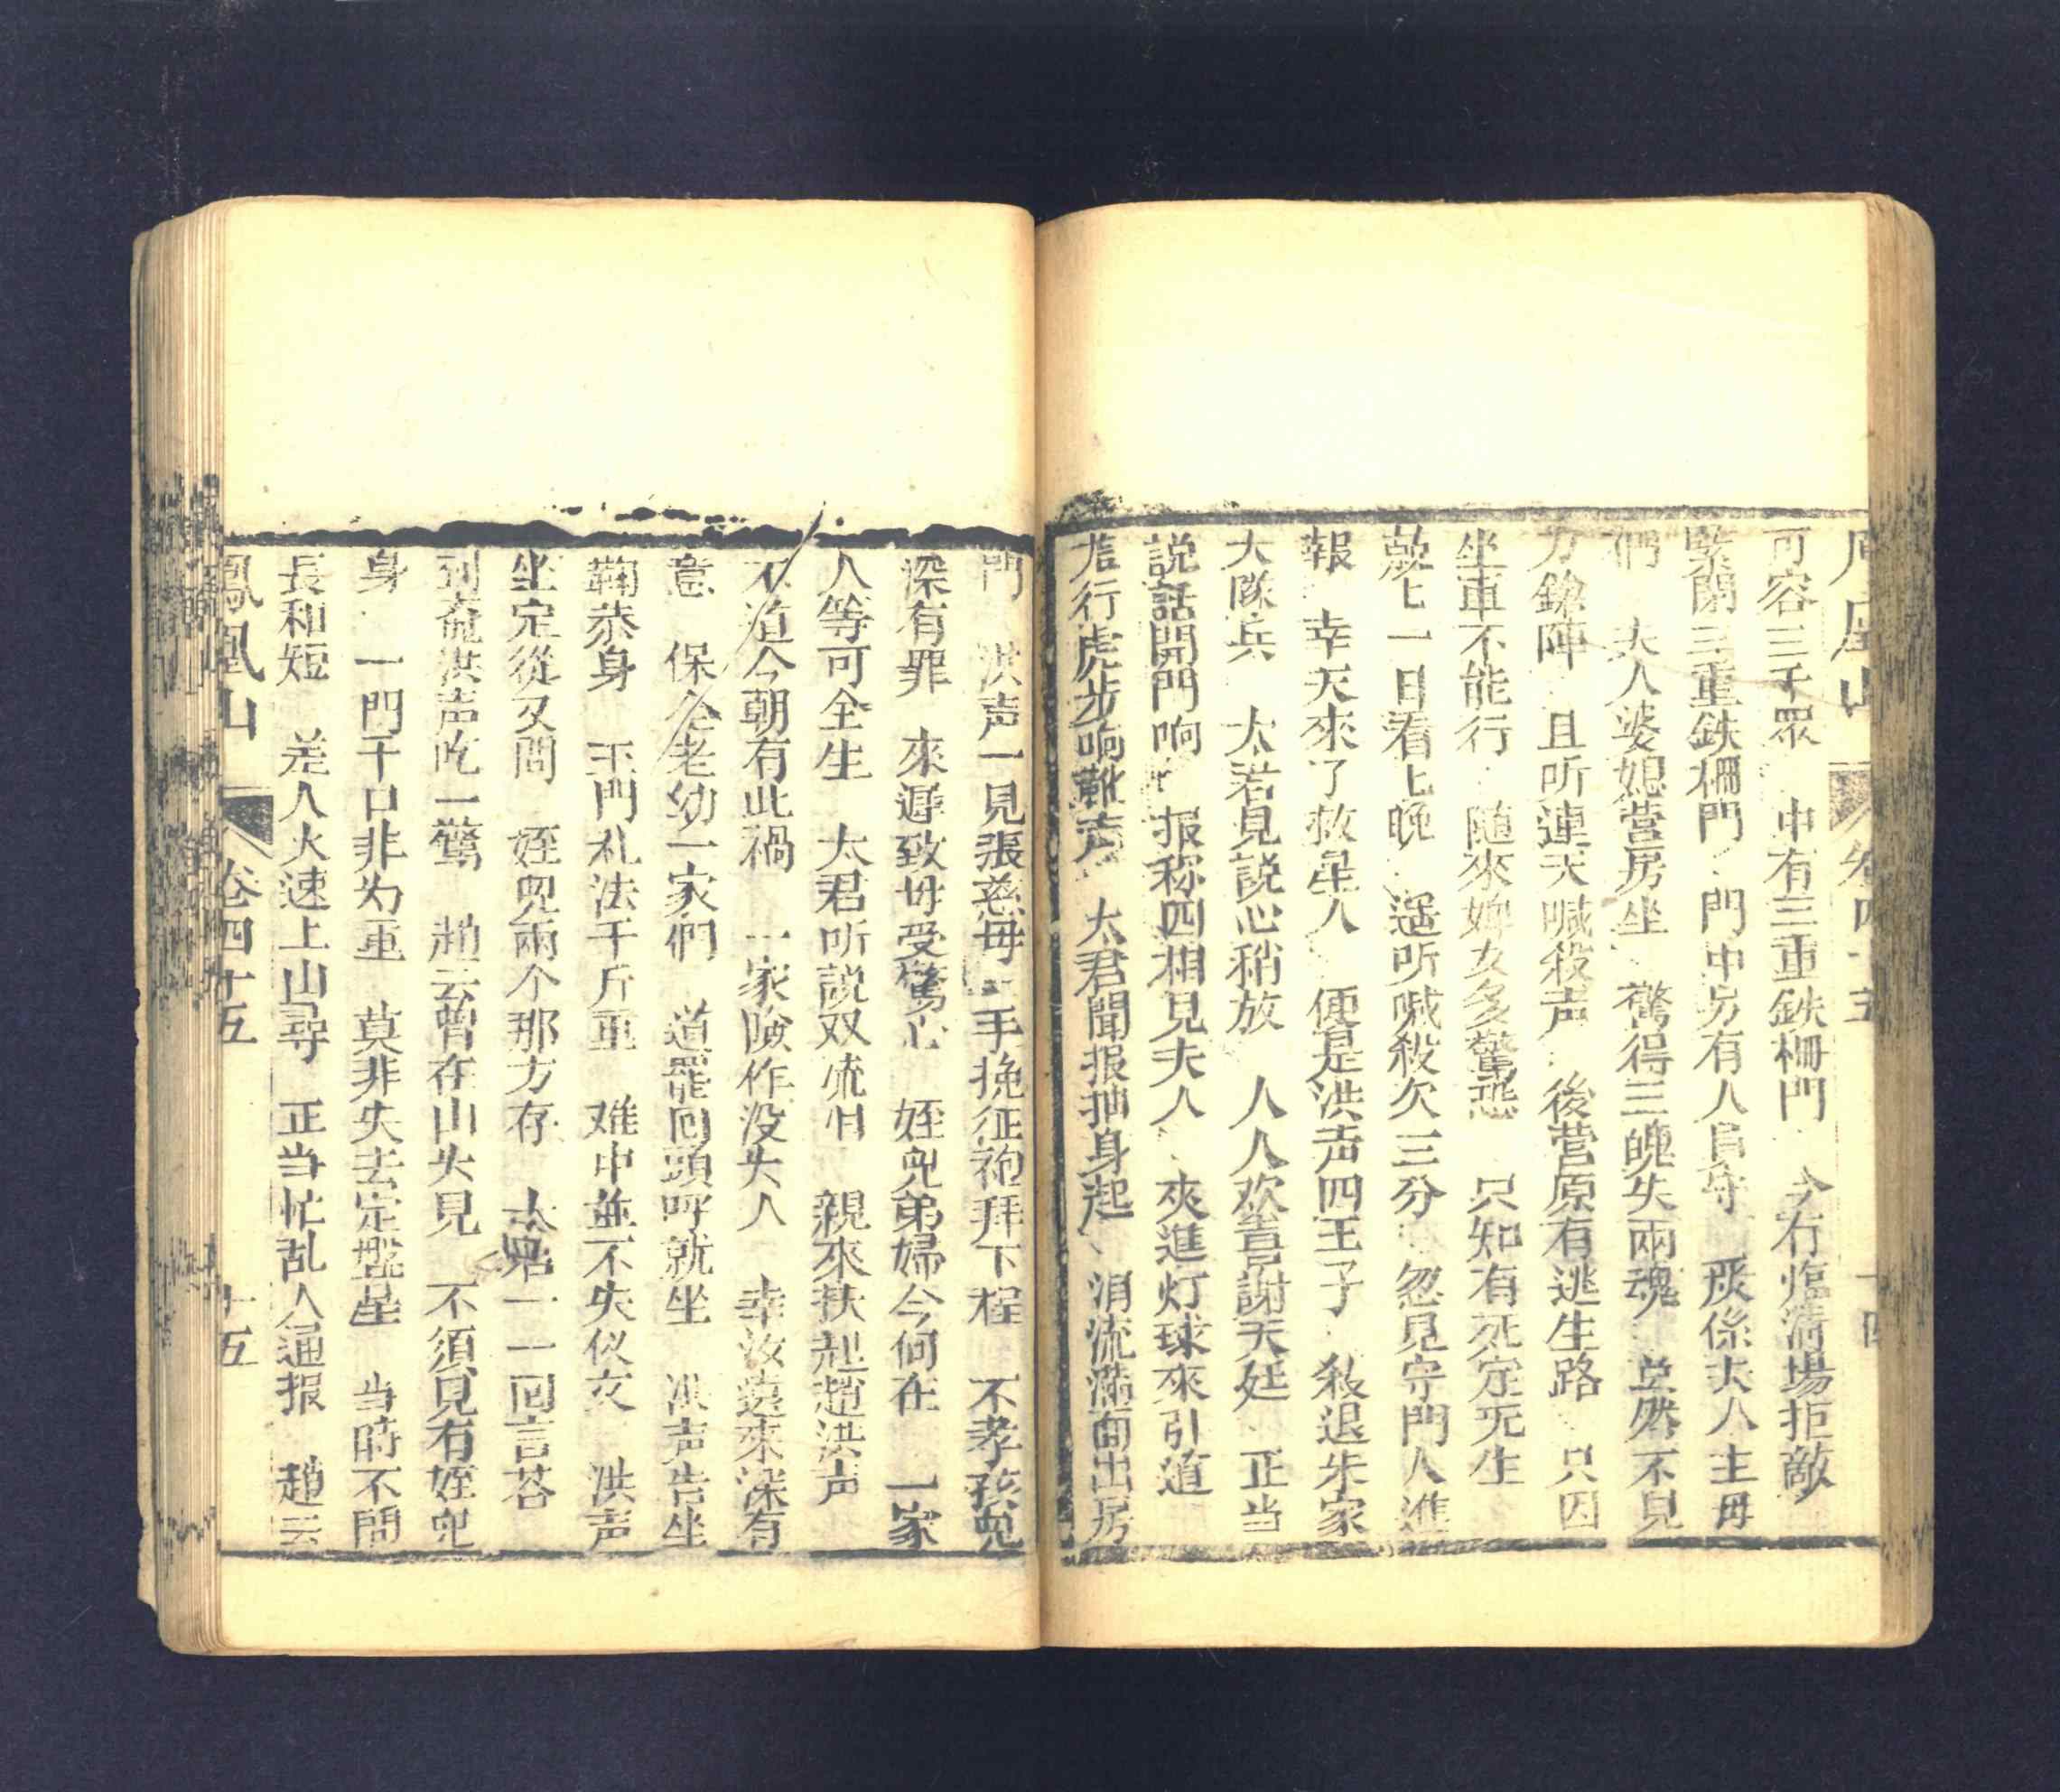 鳳凰山 卷四十五 十四
可容三千眾 中有三重鉄柵門 今有臨清場拒敵
緊閉三重鉄柵門 門中另有人員守 成係夫人主母
們 夫人婆媳营房坐 驚得三魄失兩魂 旦然不見
刀鎗陣 且听連天喊殺声 後营原有逃生路 只因
坐車不能行 隨來婢女多驚恐 只知有死定无生
戰上一日看上晚 遥听喊殺欠三分 忽見守門人進
報 幸天來了救星人 便是洪声四王子 殺退朱家
大隊兵 太君見説心稍放 人人欢喜謝天廷 正当
説話開門响 报称四相見夫人 夾進灯球來引道
龙行虎步响靴声 太君聞报抽身起 涓流滿面出房
門 洪声一見張慈母 手挽征袍拜下程 不孝孩兒
深有罪 來遲致母受驚心 姪兒弟婦今何在 一家
人等可全生 太君听説双流泪 親來扶起趙洪声
不道今朝有此禍 一家險作没头人 幸汝遠來深有
意 保全老幼一家們 道罷回頭呼就坐 洪声告坐
鞠恭身 王門礼法千斤重 难中並不失仪文 洪声
坐定從又問 姪兒兩个那方存 太君一一回言荅
到啟洪声吃一驚 趙云曾在山头見 不須見有姪兒
身 一門千口非为重 莫非失去定盤星 当時不問
長和短 差人火速上山尋 正当忙乱人通报 趙云
鳳凰山 卷四十五 十五